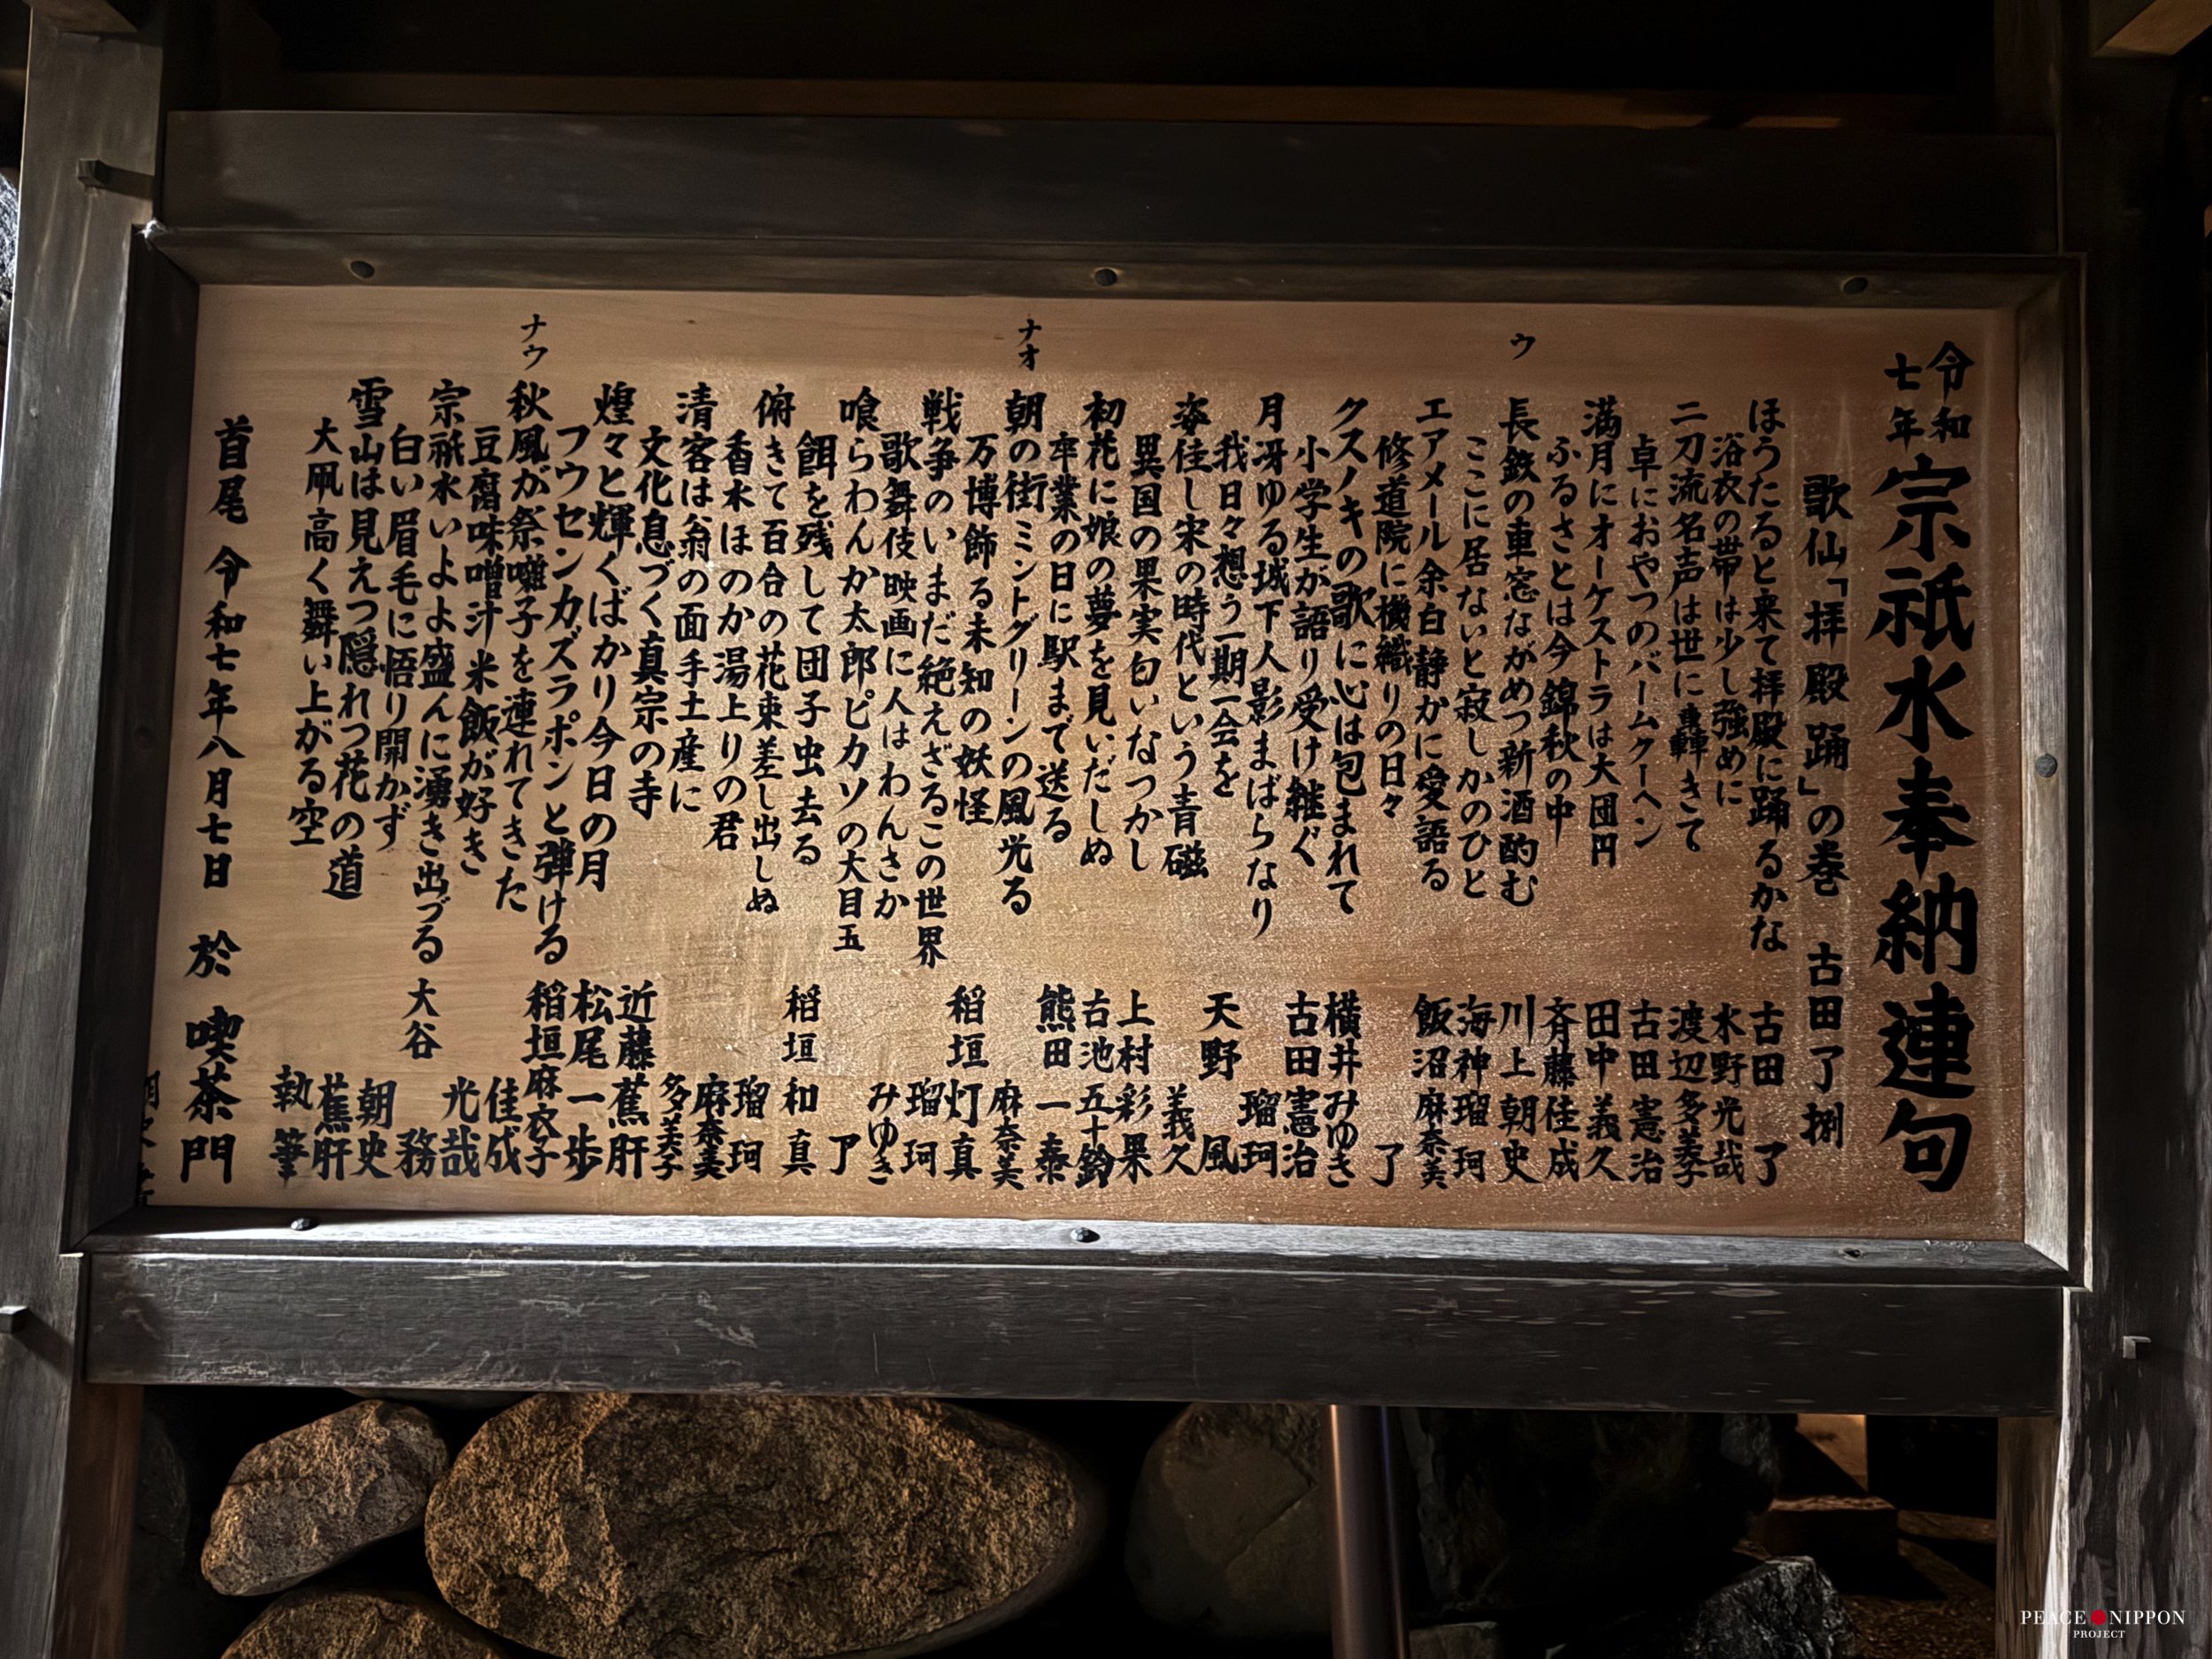 令和七年 宗祇水奉納連句
歌仙「拝殿踊」の巻 古田了捌
ほうたると来て拝殿に踊るかな 古田 了
浴衣の帯は少し強めに 水野光哉
二刀流名声は世に轟きて 渡辺多美子
卓におやつのバームクーヘン 古田憲治
満月にオーケストラは大団円 田中義久
ふるさとは今錦秋の中 斉藤佳成
ウ 長鉄の車窓ながめつ新酒酌む 川上朝史
ここに居ないと寂しかのひと 海神瑠珂
エアメール余白静かに愛語る 飯沼麻奈美
修道院に機織りの日々 了
クスノキの歌に心は包まれて 横井みゆき
小学生が語り受け継ぐ 古田憲治
月冴ゆる城下人影まばらなり 瑠珂
我日々想う一期一会を 天野 風
姿佳し宋の時代という青磁 義久
異国の果実匂いなつかし 上村彩果
初花に娘の夢を見いだしぬ 古池五十鈴
卒業の日に駅まで送る 熊田一泰
ナオ 朝の街ミントグリーンの風光る 麻奈美
万博飾る未知の妖怪 稲垣灯真
戦争のいまだ絶えざるこの世界 瑠珂
歌舞伎映画に人はわんさか みゆき
喰らわんか太郎ピカソの大目玉 了
餌を残して団子虫去る 稲垣和真
俯きて百合の花束差し出しぬ 瑠珂
香水ほのか湯上りの君 麻奈美
清客は翁の面手土産に 多美子
文化息づく真宗の寺 近藤蕉肝
煌々と輝くばかり今日の月 松尾一歩
フウセンカズラポンと弾ける 稲垣麻衣子
ナウ 秋風が祭囃子を連れてきた 佳成
豆腐味噌汁米飯が好き 光哉
宗祇水いよよ盛んに湧き出づる 大谷 務
白い眉毛に悟り開かず 朝史
雪山は見えつ隠れつ花の道 蕉肝
大凧高く舞い上がる空 執筆
首尾 令和七年八月七日 於 喫茶門
PEACE NIPPON
PROJECT